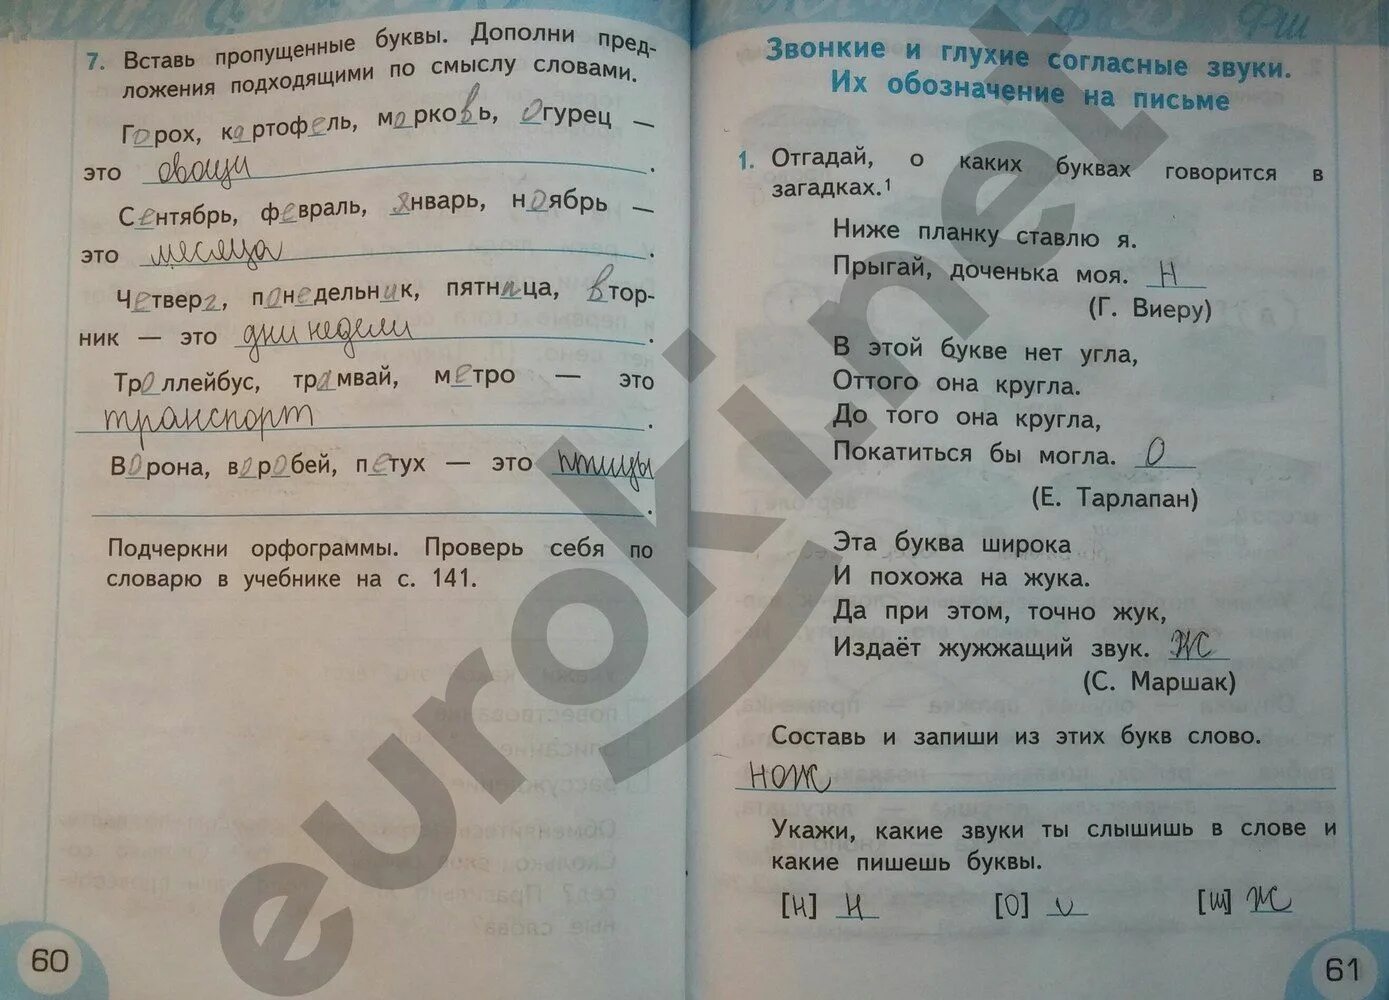 7. Вставь пропущенные буквы. Дополни пред-
ложения подходящими по смыслу словами.
Горох, картофель, морковь, огурец —
это овощи.
Сентябрь, февраль, январь, ноябрь —
это месяца.
Четверг, понедельник, пятница, втор-
ник — это дни недели.
Троллейбус, трамвай, метро — это
транспорт.
Ворона, воробей, петух — это птицы
.
Подчеркни орфограммы. Проверь себя по
словарю в учебнике на с. 141.
60
Звонкие и глухие согласные звуки.
Их обозначение на письме
1. Отгадай, о каких буквах говорится в
загадках.¹
Ниже планку ставлю я.
Прыгай, доченька моя. Н
(Г. Виеру)
В этой букве нет угла,
Оттого она кругла.
До того она кругла,
Покатиться бы могла. О
(Е. Тарлапан)
Эта буква широка
И похожа на жука.
Да при этом, точно жук,
Издаёт жужжащий звук. Ж
(С. Маршак)
Составь и запиши из этих букв слово.
нож
Укажи, какие звуки ты слышишь в слове и
какие пишешь буквы.
[Н] Н [О] [Ш] Ж
61
euroki.net